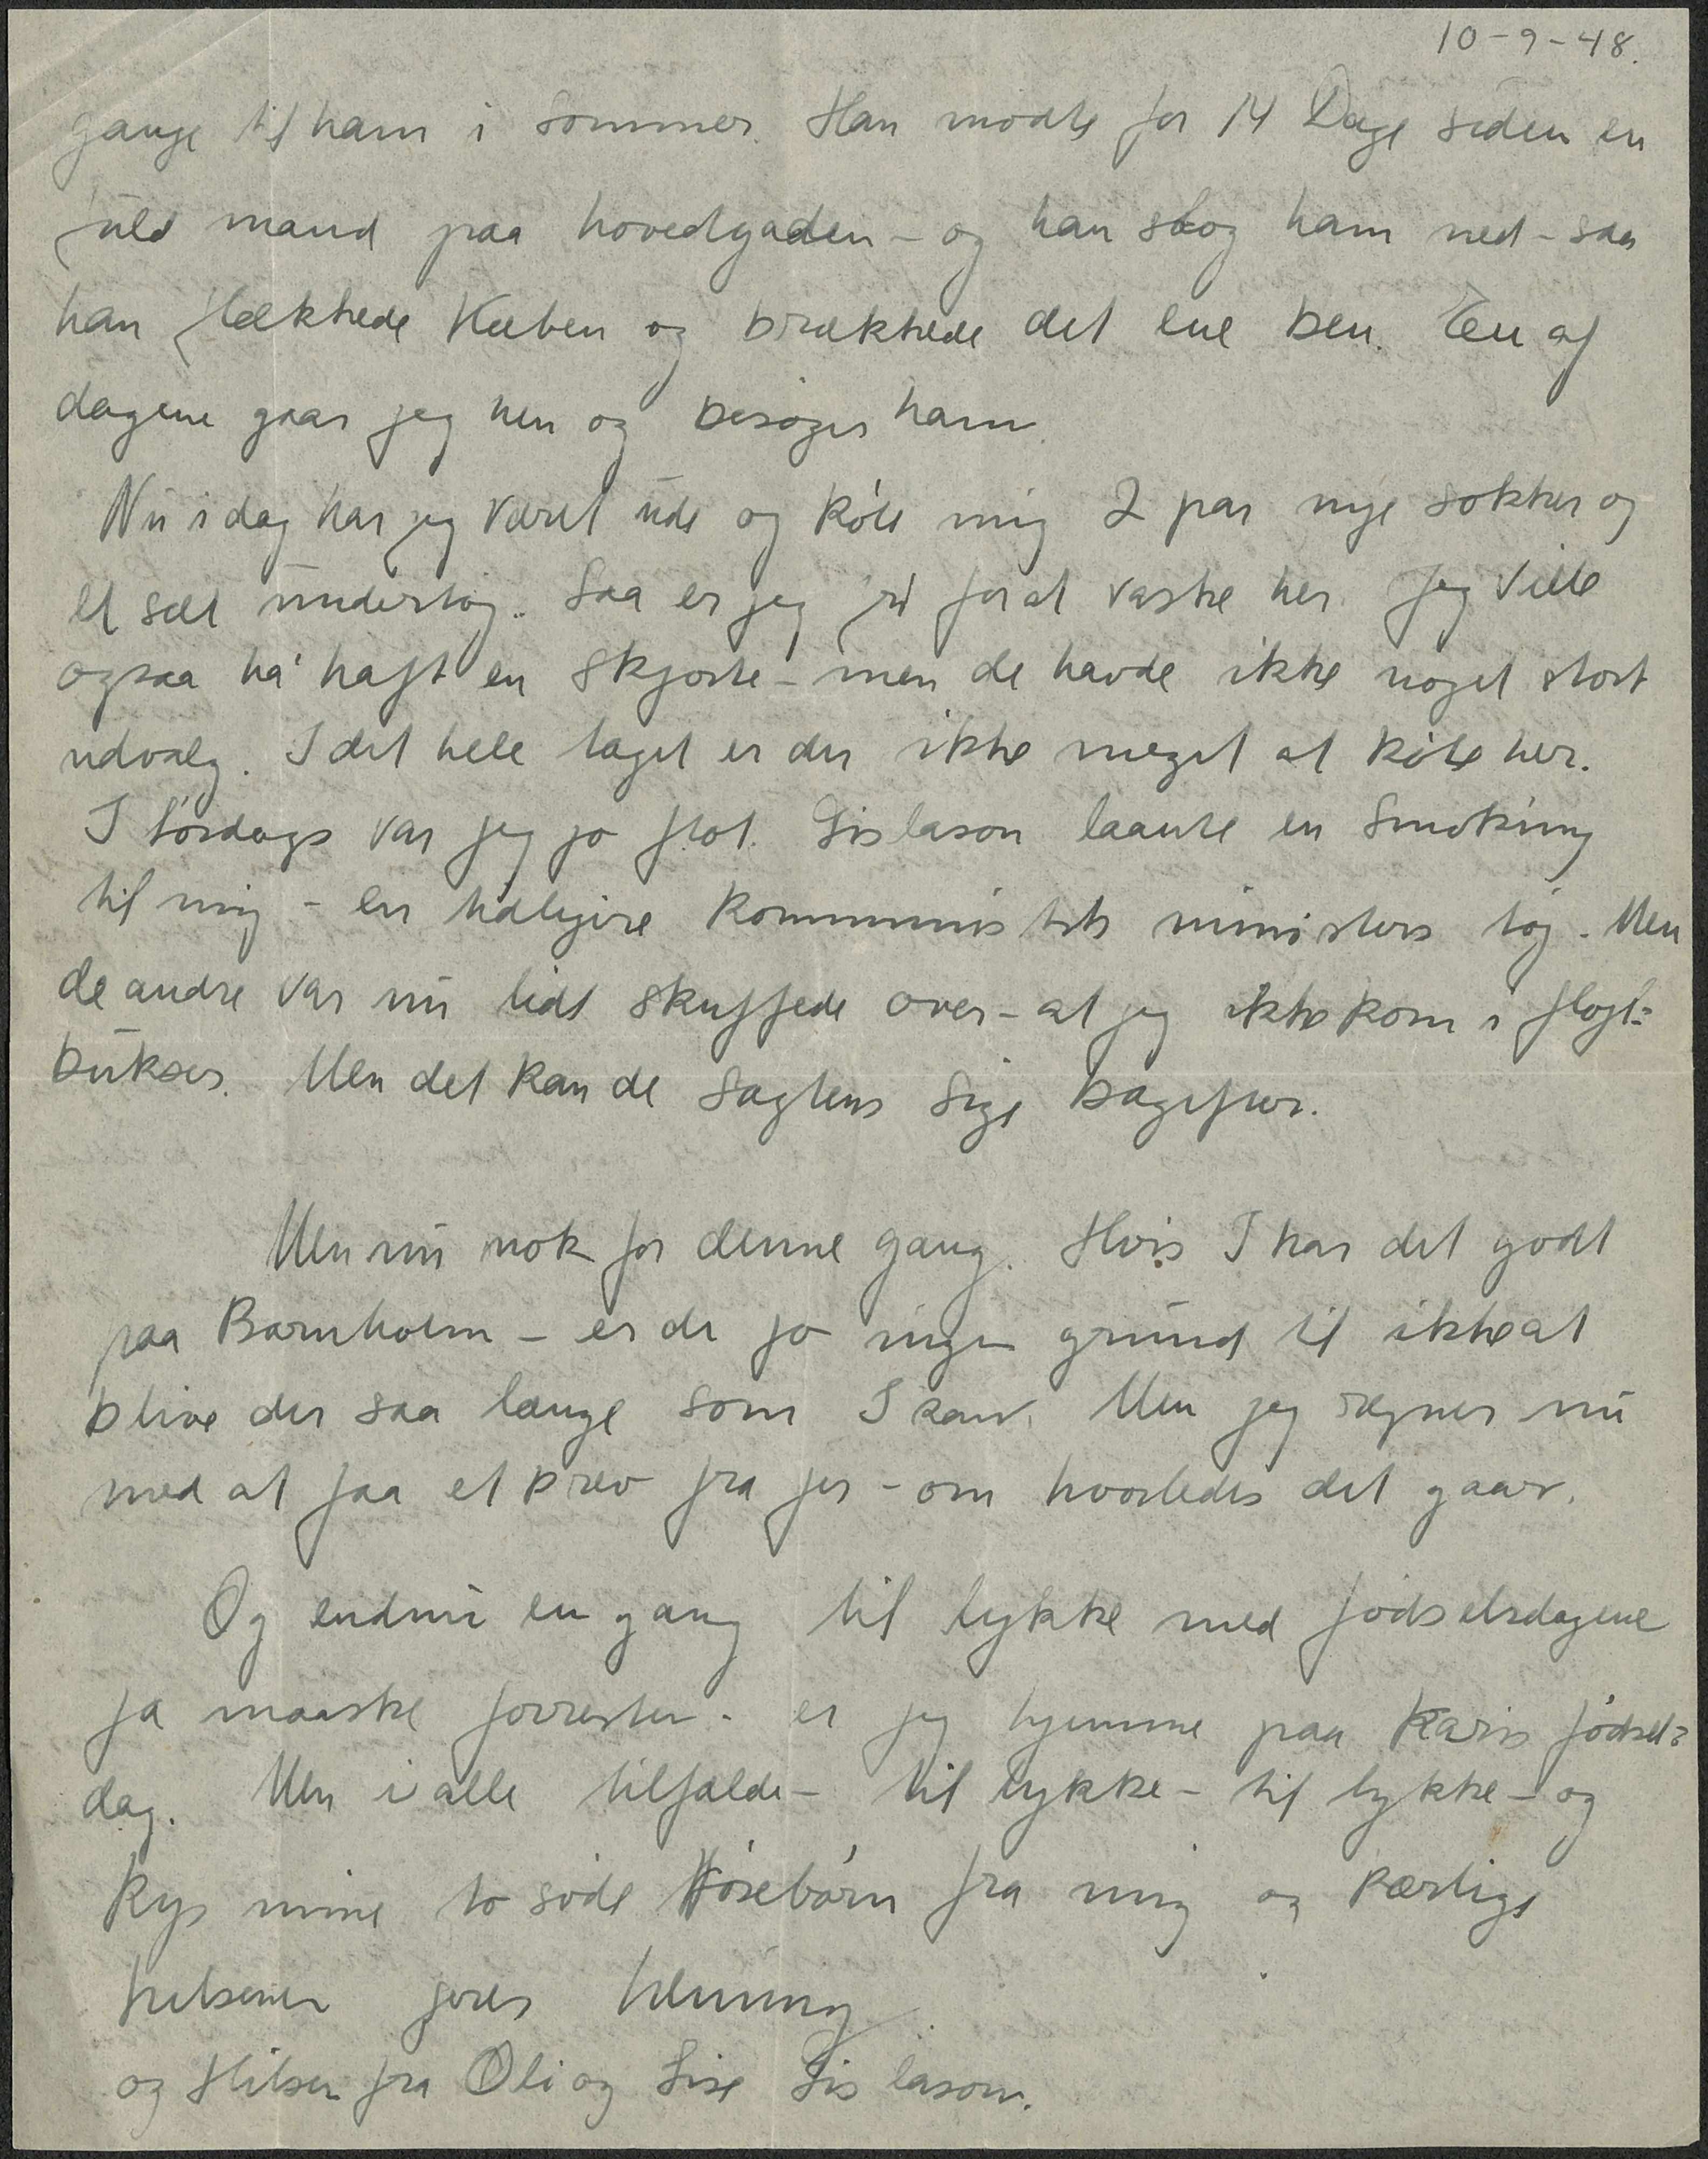 10-9-48.
gange til ham i Sommer. Han mødte for 14 Dage siden en
fuld mand paa hovedgaden - og han slog ham ned - saa
han flækkede Kæben og brækkede det ene ben. En af
dagene gaar jeg hen og besøger ham.
Nu i dag har jeg været ude og købe mig 2 par nye sokker og
et sæt undertøj. Saa er jeg fri for at vaske her. Jeg ville
ogsaa ha' haft en skjorte - men de havde ikke noget stort
udvalg. I det hele taget er der ikke meget at købe her.
I lørdags var jeg jo flot. Gislason laante en Smoking
til mig - en tidligere kommunistisk ministers tøj. Men
de andre var nu lidt skuffede over - at jeg ikke kom i fløjl=
bukser. Men det kan de sagtens sige bagefter.
Men nu nok for denne gang. Hvis I har det godt
paa Bornholm - er der jo ingen grund til ikke at
blive der saa længe som I kan. Men jeg regner nu
med at faa et brev fra jer - om hvorledes det gaar.
Og endnu en gang til lykke med fødselsdagene
ja maaske forresten - er jeg hjemme paa Karis fødsel=
dag. Men i alle tilfælde - til lykke - til lykke - og
kys mine to søde børn fra mig og kærlige
hilsener jeres Henning
og Hilsen fra Oli og Lise Gislason.